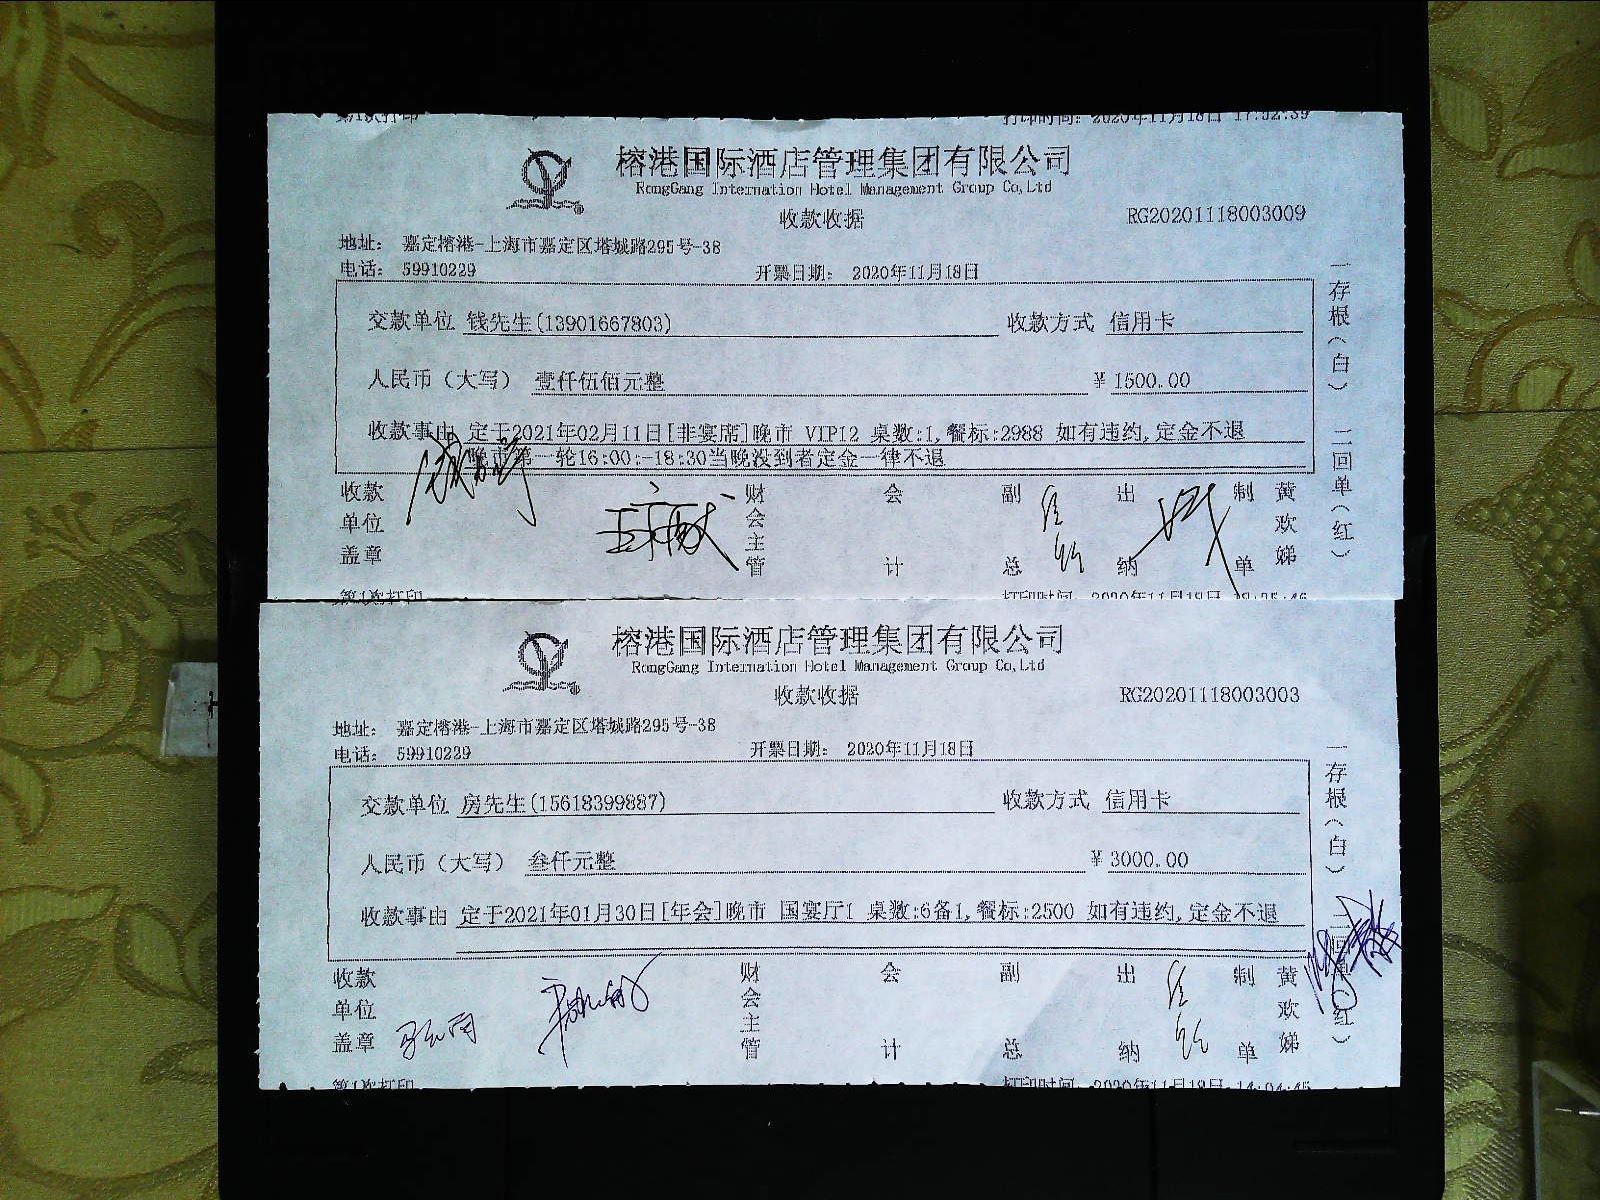 第1次打印 打印时间: 2020年11月18日 17:52:39
榕港国际酒店管理集团有限公司
RongGang Internation Hotel Management Group Co,Ltd
收款收据 RG20201118003009
地址: 嘉定榕港-上海市嘉定区塔城路295号-38
电话: 59910229 开票日期: 2020年11月18日
交款单位 钱先生(13901667803) 收款方式 信用卡
人民币(大写) 壹仟伍佰元整 ¥ 1500.00
收款事由 定于2021年02月11日[非宴席]晚市 VIP12 桌数:1,餐标:2988 如有违约,定金不退
晚市第一轮16:00:-18:30当晚没到者定金一律不退
收款单位盖章 财会主管 会计 副总 出纳 制单 黄欢娣
一存根(白) 二回单(红)
第1次打印 打印时间: 2020年11月18日
榕港国际酒店管理集团有限公司
RongGang Internation Hotel Management Group Co,Ltd
收款收据 RG20201118003003
地址: 嘉定榕港-上海市嘉定区塔城路295号-38
电话: 59910229 开票日期: 2020年11月18日
交款单位 房先生(15618399887) 收款方式 信用卡
人民币(大写) 叁仟元整 ¥ 3000.00
收款事由 定于2021年01月30日[年会]晚市 国宴厅1 桌数:6备1,餐标:2500 如有违约,定金不退
收款单位盖章 财会主管 会计 副总 出纳 制单 黄欢娣
一存根(白) 二回单(红)
第1次打印 打印时间: 2020年11月18日 14:04:45